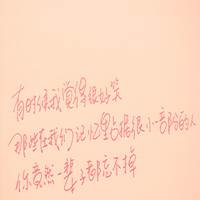 有时候我觉得很好笑
那些在我们记忆里占据很小一部分的人
你竟然一辈子都忘不掉